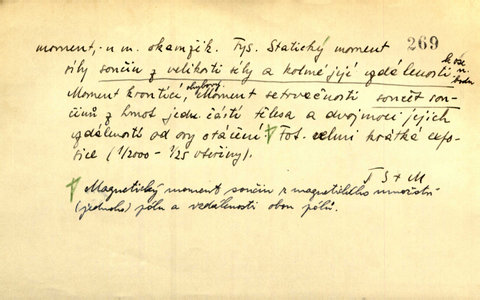 269
moment, -u m. okamžik. Fys. Statický moment
síly součin z velikosti síly a kolmé její vzdálenosti
Moment kroutící, ohybový, Moment setrvačnosti součet sou-
činů z hmot jedn. částí tělesa a dvojmocí jejich
vzdáleností od osy otáčení. Fot. velmi krátká expo-
sice (1/2000 - 1/25 vteřiny).
Magnetický moment součin z magnetického množství
(jednoho) pólu a vzdálenosti obou pólů.